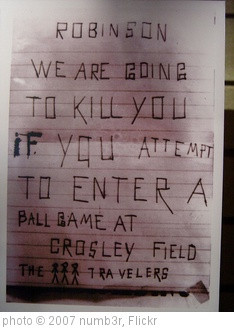 ROBINSON
WE ARE GOING
TO KILL YOU
iF. YOU ATTEMPT
TO ENTER A
BALL GAME AT
CROSLEY FIELD
THE TRAVELERS
photo © 2007 numb3r, Flickr